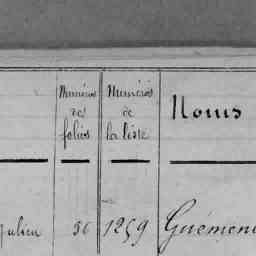 Numéros des folios
Numéros de la liste
Noms
Julien 56 1259 Guémené